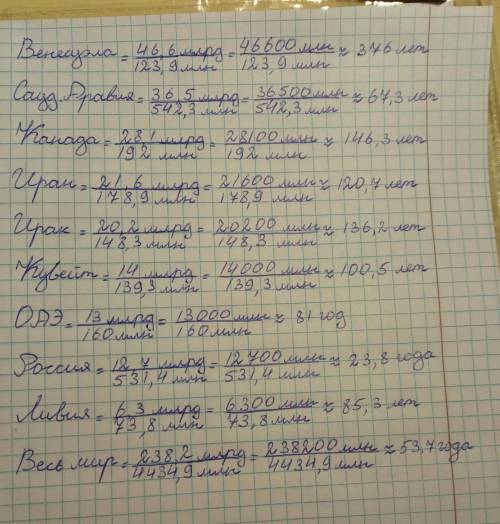 Венесуэла = 46,6 млрд / 123,9 млн = 46600 млн / 123,9 млн ≈ 376 лет
Сауд. Аравия = 36,5 млрд / 542,3 млн = 36500 млн / 542,3 млн ≈ 67,3 лет
Канада = 28,1 млрд / 192 млн = 28100 млн / 192 млн ≈ 146,3 лет
Иран = 21,6 млрд / 178,9 млн = 21600 млн / 178,9 млн ≈ 120,7 лет
Ирак = 20,2 млрд / 148,3 млн = 20200 млн / 148,3 млн ≈ 136,2 лет
Кувейт = 14 млрд / 139,3 млн = 14000 млн / 139,3 млн ≈ 100,5 лет
ОАЭ = 13 млрд / 160 млн = 13000 млн / 160 млн ≈ 81 год
Россия = 12,7 млрд / 531,4 млн = 12700 млн / 531,4 млн ≈ 23,8 года
Ливия = 6,3 млрд / 73,8 млн = 6300 млн / 73,8 млн ≈ 85,3 лет
Весь мир = 238,2 млрд / 4434,9 млн = 238200 млн / 4434,9 млн ≈ 53,7 года